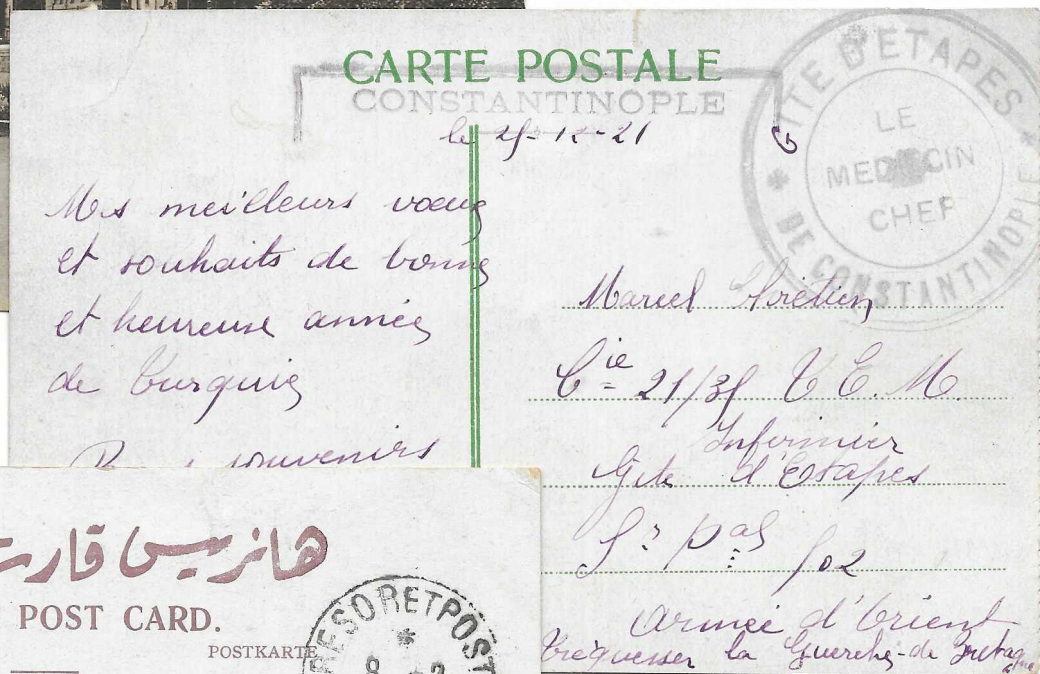 CARTE POSTALE
CONSTANTINOPLE
GITE D'ETAPES
DE CONSTANTINOPLE
LE
MEDECIN
CHEF
le 25-12-21
Mes meilleurs vœux
et souhaits de bonne
et heureuse année
de Turquie
souvenirs
Marcel
Cie 21/35 T E. M.
Infirmier
Gite d'Etapes
Sr pal 502
Armée d'Orient
la Guerche-de Bretagne
POST CARD.
POSTKARTE
TRESOR ET POST
8